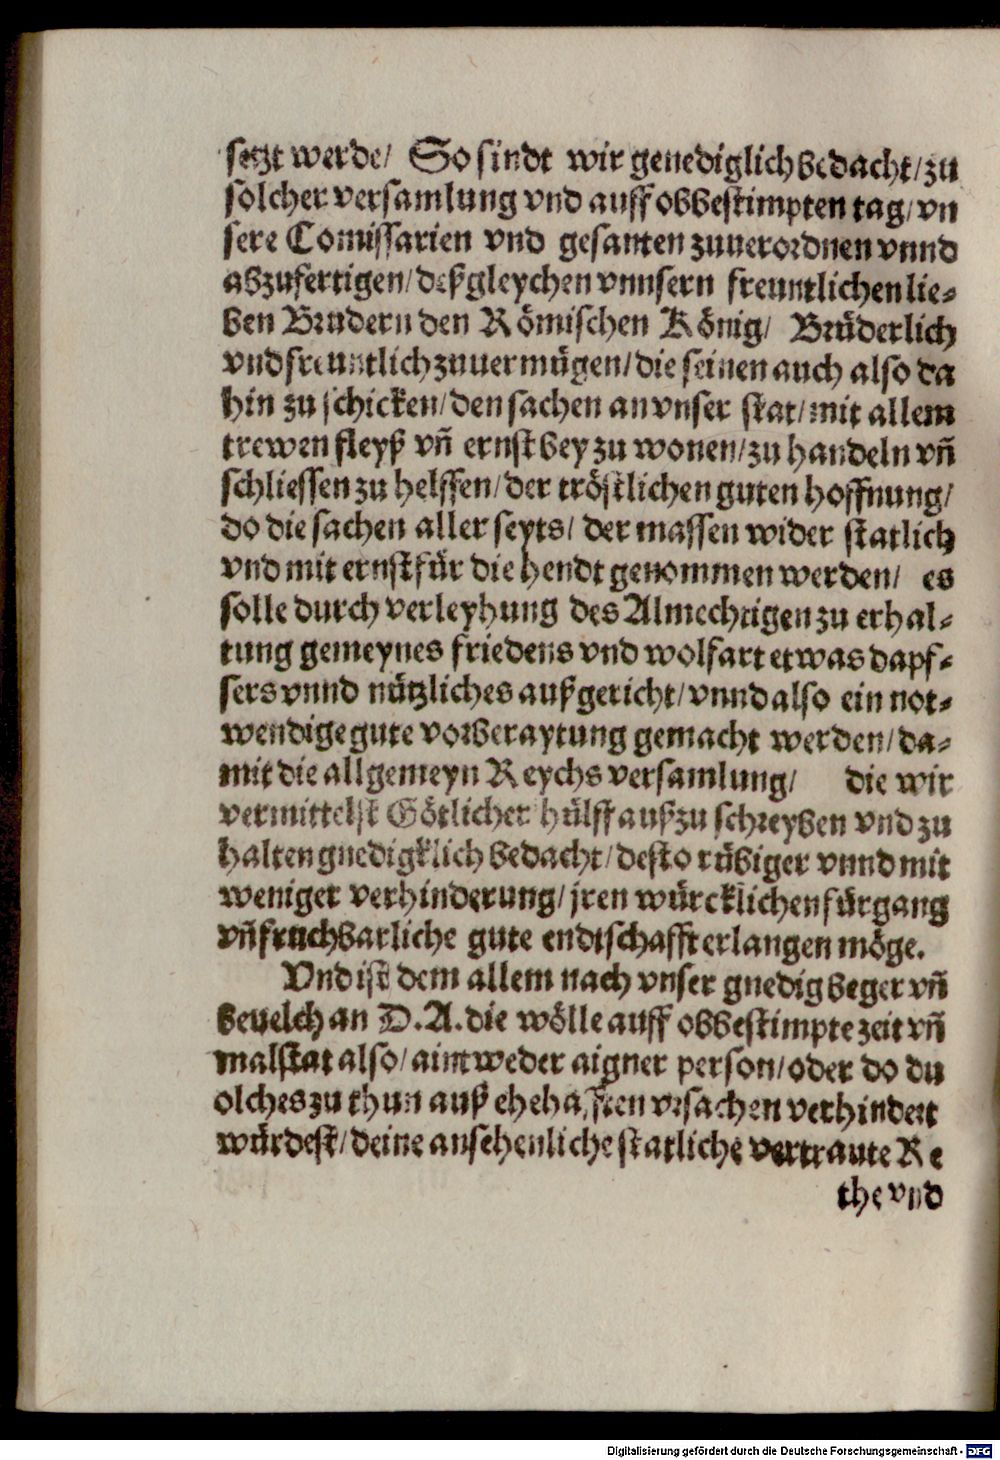 setzt werde/ So sindt wir genediglich bedacht/ zu
solcher versamlung vnd auff obbestimpten tag/ vn
sere Comissarien vnd gesanten zuuerordnen vnnd
abzufertigen/ deßgleychen vnnsern freuntlichen lie-
ben Brudern den Römischen König/ Brüderlich
vnd freuntlich zuuermügen/ die seinen auch also da
hin zu schicken/ den sachen an vnser stat/ mit allem
trewen fleyß vñ ernst bey zu wonen/ zu handeln vñ
schliessen zu helffen/ der tröstlichen guten hoffnung/
do die sachen aller seyts/ der massen wider statlich
vnd mit ernst für die hendt genommen werden/ es
solle durch verleyhung des Almechtigen zu erhal-
tung gemeynes friedens vnd wolfart etwas dapf-
fers vnnd nützliches außgericht/ vnnd also ein not-
wendige gute vorberaytung gemacht werden/ da-
mit die allgemeyn Reychs versamlung/ die wir
vermittelst Götlicher hülff außzu schreyben vnd zu
halten gnedigklich bedacht/ desto rübiger vnnd mit
weniger verhinderung/ jren würcklichen fürgang
vñ fruchbarliche gute endtschafft erlangen möge.
Vnd ist dem allem nach vnser gnedig beger vñ
beuelch an D. A. die wölle auff obbestimpte zeit vñ
malstat also/ aintweder aigner person/ oder do du
olches zu thun auß ehehafften vrsachen verhindert
würdest/ deine ansehenliche statliche vertraute Re
the vnd
Digitalisierung gefördert durch die Deutsche Forschungsgemeinschaft - DFG